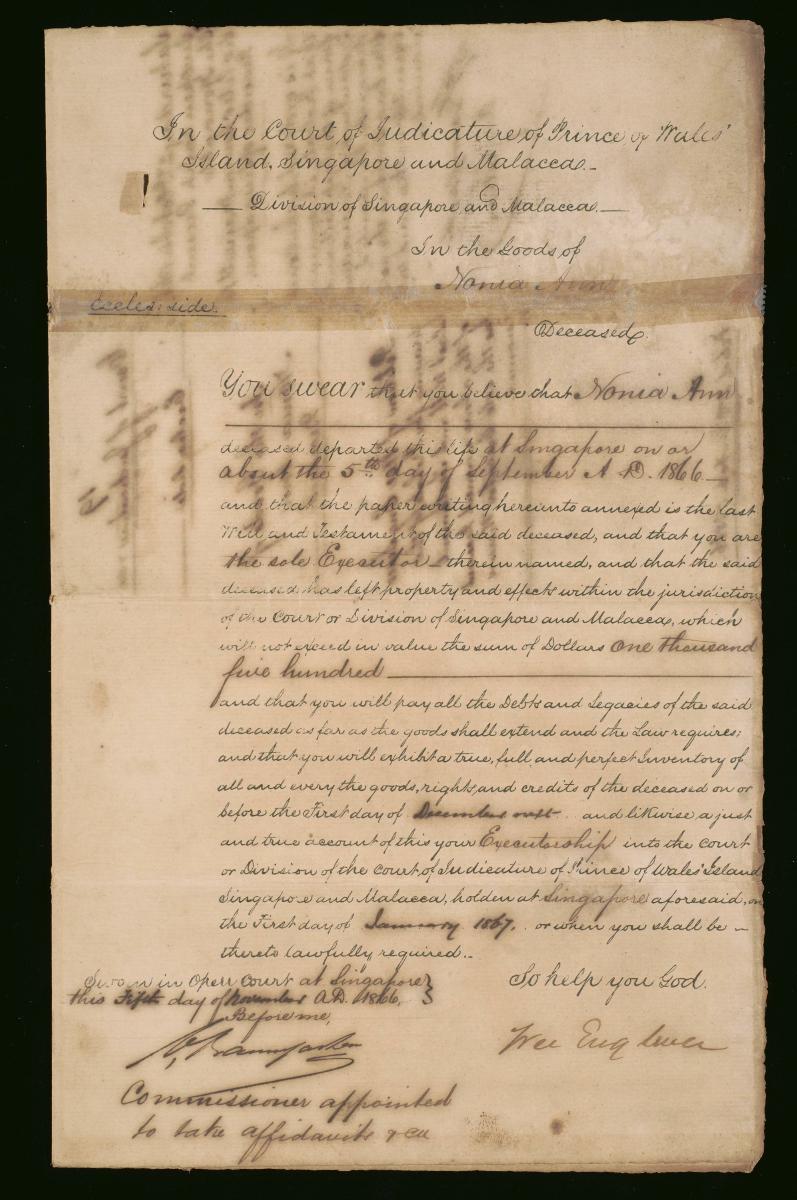 In the Court of Judicature of Prince of Wales'
Island, Singapore and Malacca.
Division of Singapore and Malacca.
In the Goods of
Nonia Ann
Eccles: side.
Deceased.
You swear that you believe that Nonia Ann
deceased departed this life at Singapore on or
about the 5th day of September A.D. 1866
and that the paper writing hereunto annexed is the last
Will and Testament of the said deceased, and that you are
the sole Executor therein named, and that the said
deceased has left property and effects within the jurisdiction
of the Court or Division of Singapore and Malacca, which
will not exceed in value the sum of Dollars one thousand
five hundred
and that you will pay all the Debts and Legacies of the said
deceased as far as the goods shall extend and the Law requires;
and that you will exhibit a true, full, and perfect Inventory of
all and every the goods, rights, and credits of the deceased on or
before the First day of December next and likewise a just
and true account of this your Executorship into the Court
or Division of the Court of Judicature of Prince of Wales' Island
Singapore and Malacca, holden at Singapore aforesaid, on
the First day of January 1867. or when you shall be
thereto lawfully required.
Sworn in Open Court at Singapore
this Fifth day of November A.D. 1866.
Before me,
So help you God.
Wee Eng
Commissioner appointed
to take affidavits &ca